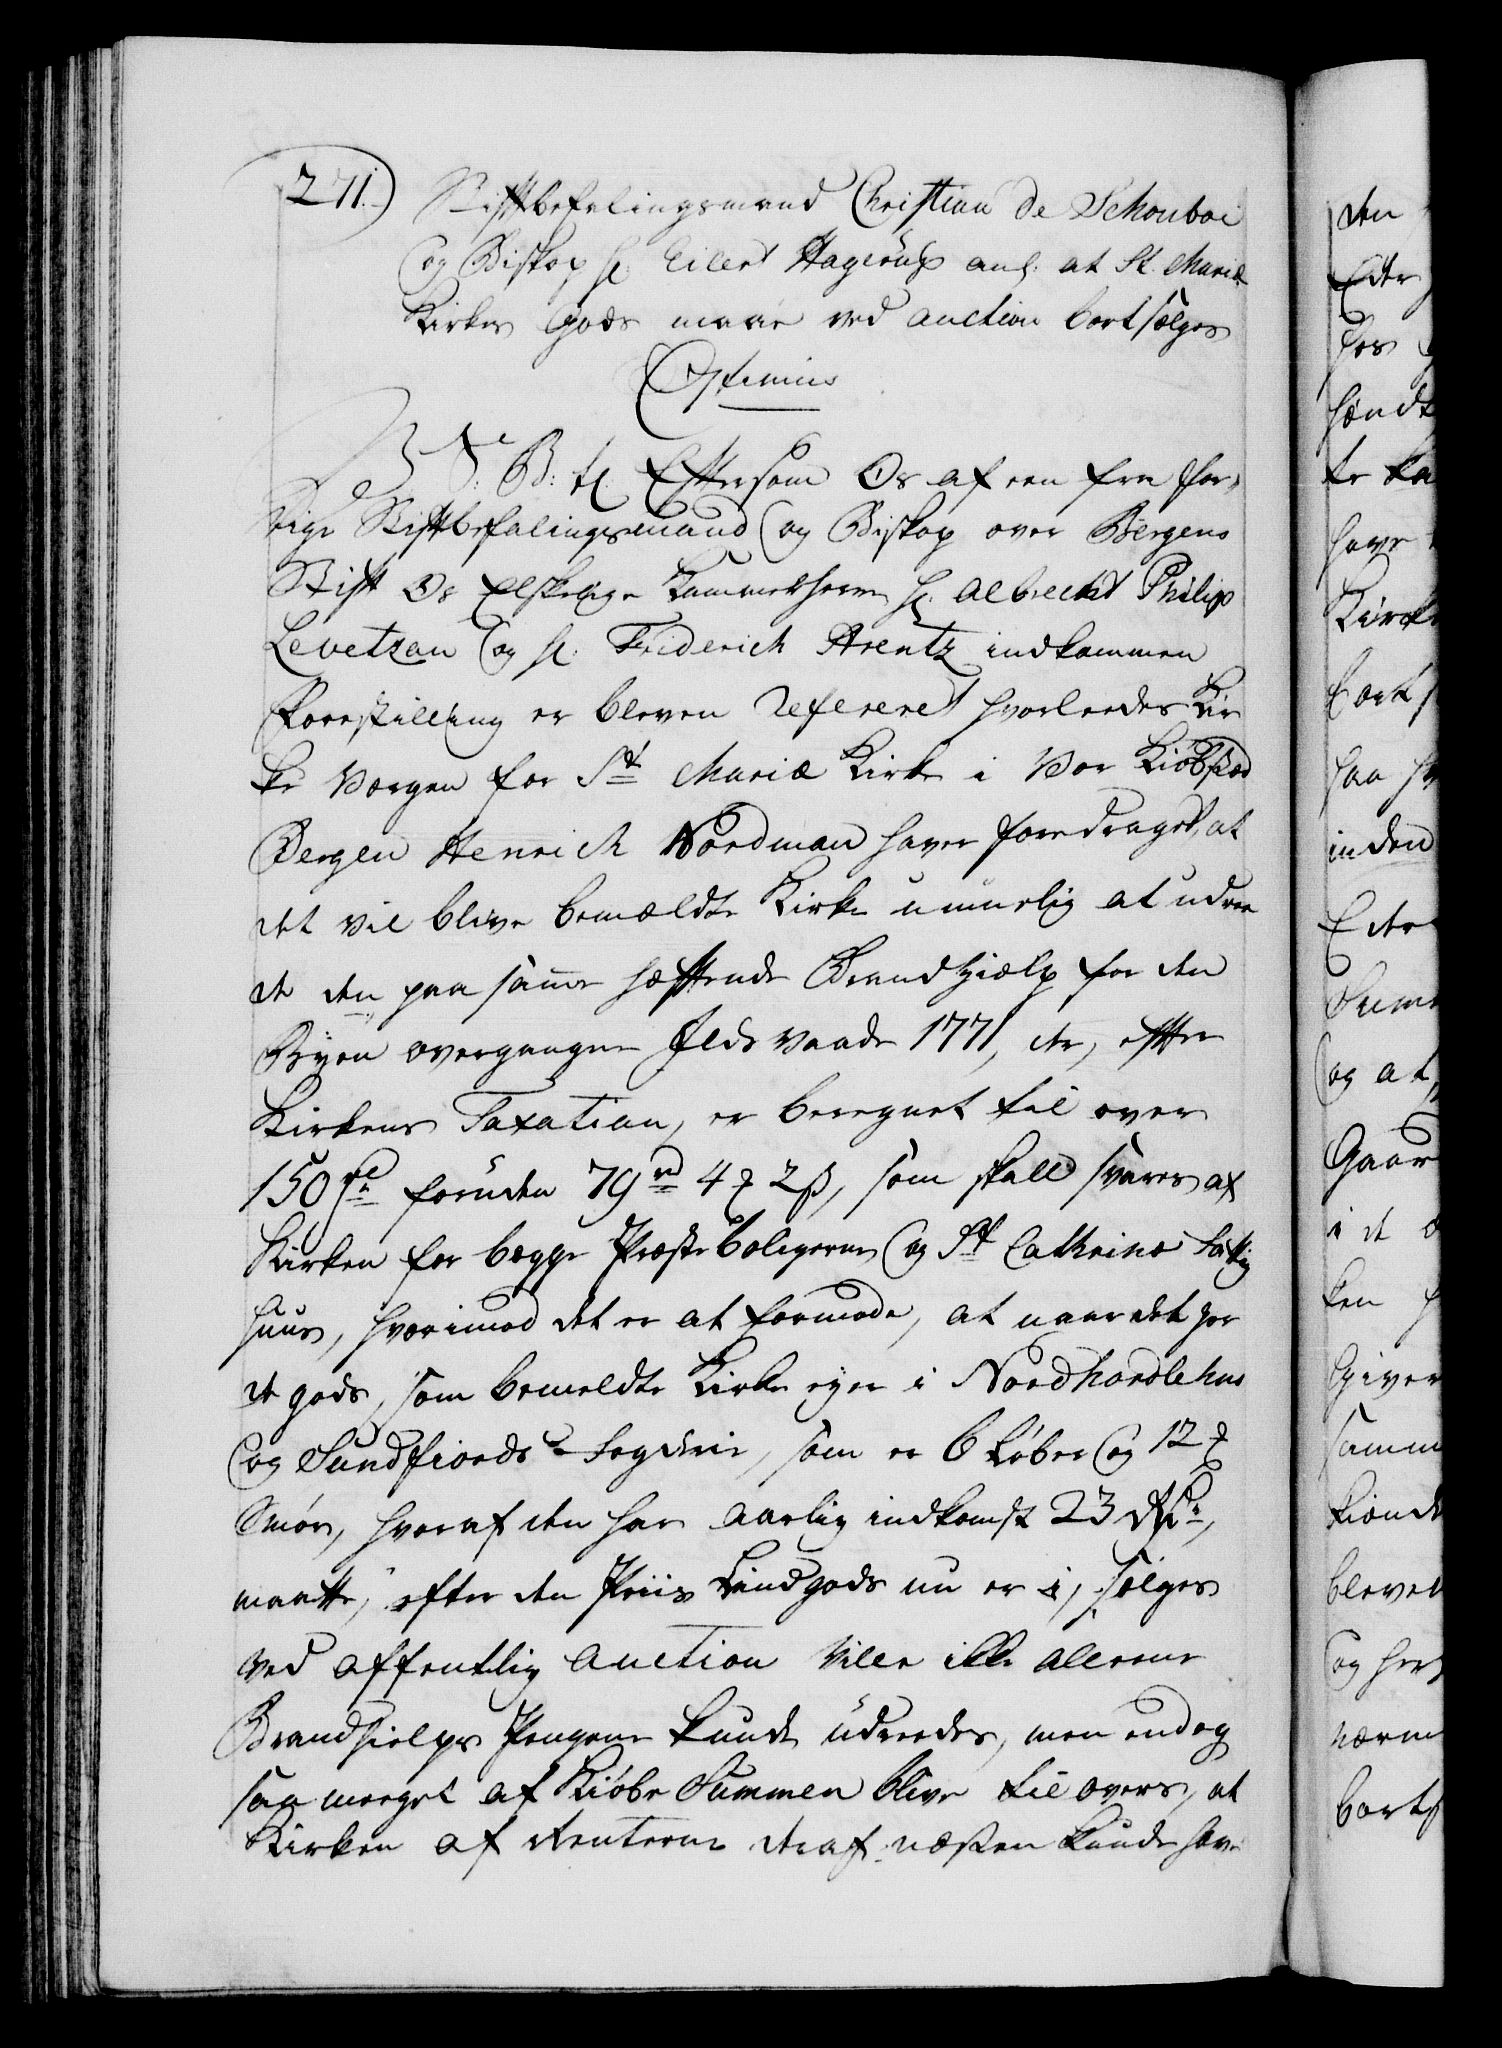 271.)
Stiftbefalingsmand Christian de Schouboe
og Biskop Hr. Eilert Hagerup anl: at St. Mariæ
Kirkes Gods maae ved auction bortsælges
Eftersom Os af een fra for,,
rige Stiftbefalingsmand og Biskop over Bergens
Stift Os Elskelige Kammerherre Hr. Albrecht Philip
Levetzau og Hr. Friderich Arentz indkommen
Forestilling er bleven refereret hvorleedes Kir
ke Værgen for St Mariæ Kirke i Vor Kiøbsted
Bergen Henrich Nordman haver foredraget, at
det vil blive bemældte Kirke umuelig at udree
de den paa samme hæftende Brandhjælp for den
Byen overgangne Ilds Vaade 1771, der, efter
Kirkens Taxation, er beregnet til over
150 rd foruden 79 rd 4 2 ß, som skall svares af
Kirken for begge Præsteboligerne og St Cathrinæ Fattig
huus, hvorimod det er at formode, at naar det Jor
de gods, som bemeldte Kirke eyer i Nordhordlehns
og Sundfiords Fogderie, som er 6 Løber og 12
Smør, hvoraf den har aarlig indkomst 23
maatte, efter den Priis Landgods nu er i, sælges
ved offentlig Auction ville ikke alleene
Brandhielps Pengene kunde udreedes, men endog
saa meeget af Kiøbe Summen blive til overs, at
Kirken af Renterne deraf næsten kunde have